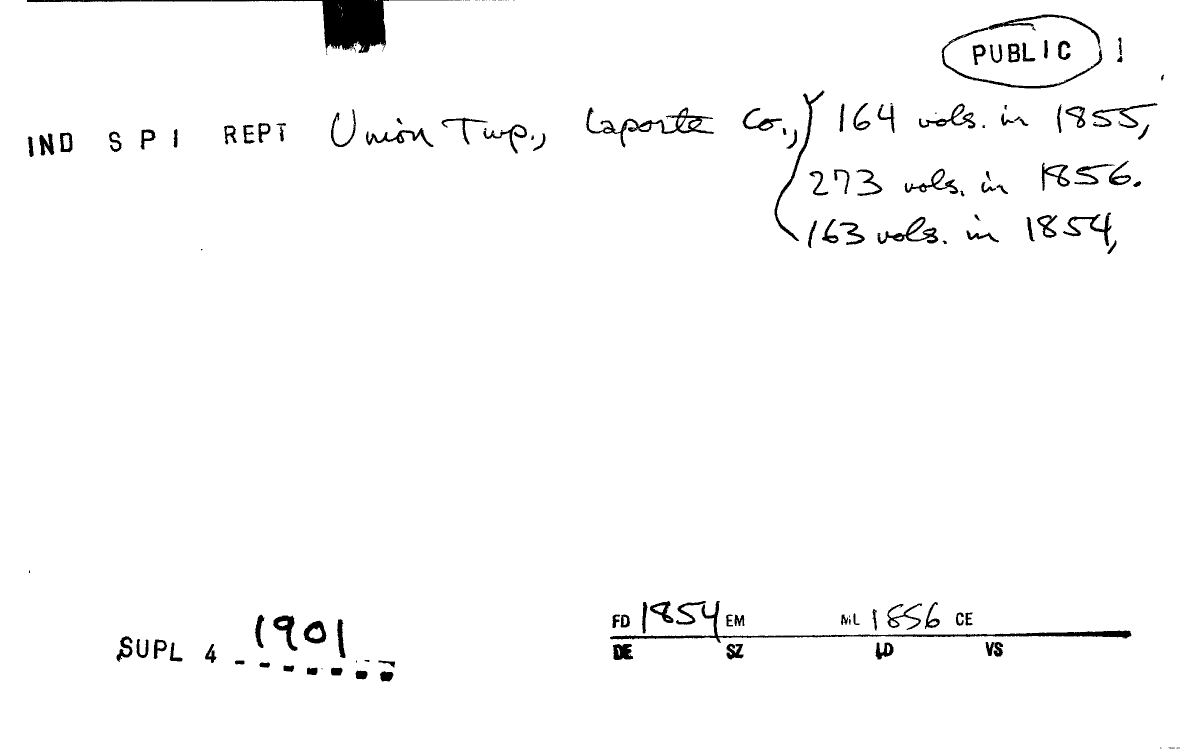 PUBLIC !
IND S P I REPT Union Twp., Laporte Co., 164 vols. in 1855,
273 vols. in 1856.
163 vols. in 1854,
SUPL 4 1901
FD 1854 EM ML 1856 CE
DE SZ LD VS